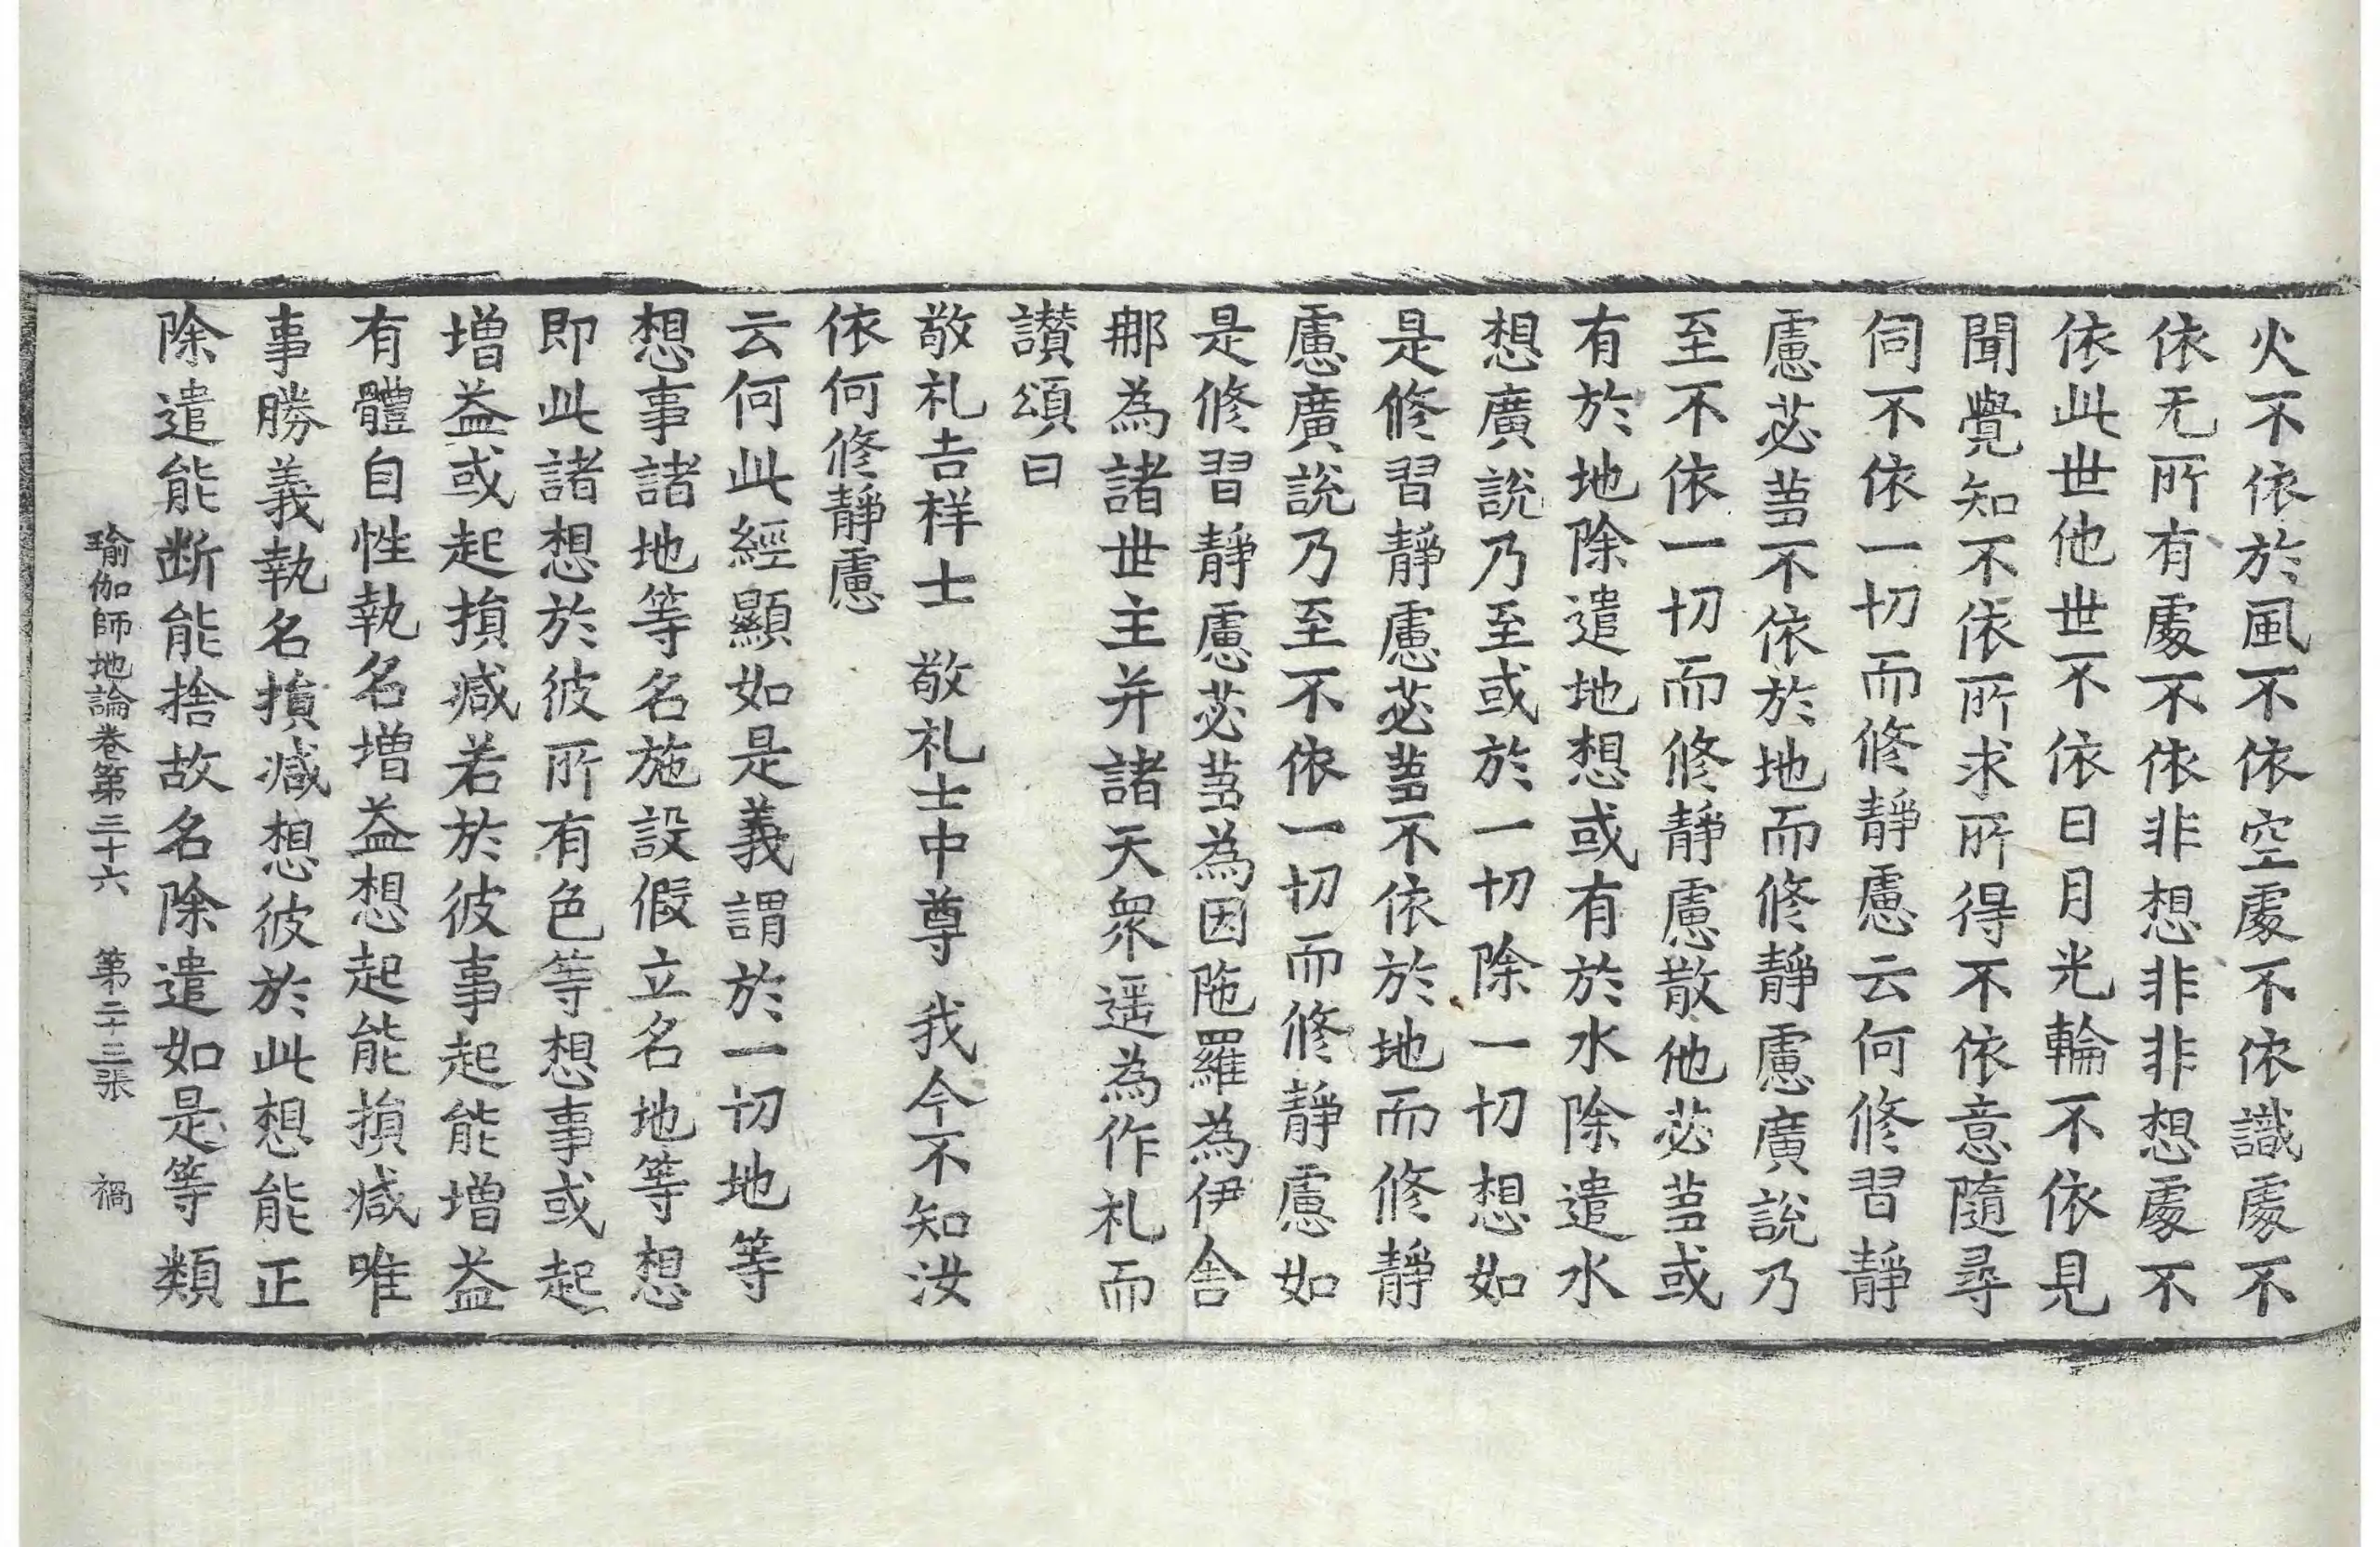 火不依於風不依空處不依識處不
依无所有處不依非想非非想處不
依此世他世不依日月光輪不依見
聞覺知不依所求所得不依意隨尋
伺不依一切而修靜慮云何修習靜
慮苾蒭不依於地而修靜慮廣說乃
至不依一切而修靜慮散他苾蒭或
有於地除遣地想或有於水除遣水
想廣說乃至或於一切除一切想如
是修習靜慮苾蒭不依於地而修靜
慮廣說乃至不依一切而修靜慮如
是修習靜慮苾蒭為因陁羅為伊舍
那為諸世主并諸天衆遥為作礼而
讃頌曰
敬礼吉祥士 敬礼士中尊 我今不知汝
依何修靜慮
云何此經顯如是義謂於一切地等
想事諸地等名施設假立名地等想
即此諸想於彼所有色等想事或起
增益或起損减若於彼事起能增益
有體自性執名增益想起能損减唯
事勝義執名損减想彼於此想能正
除遣能断能捨故名除遣如是等類
瑜伽師地論卷第三十六 第二十三張 禍